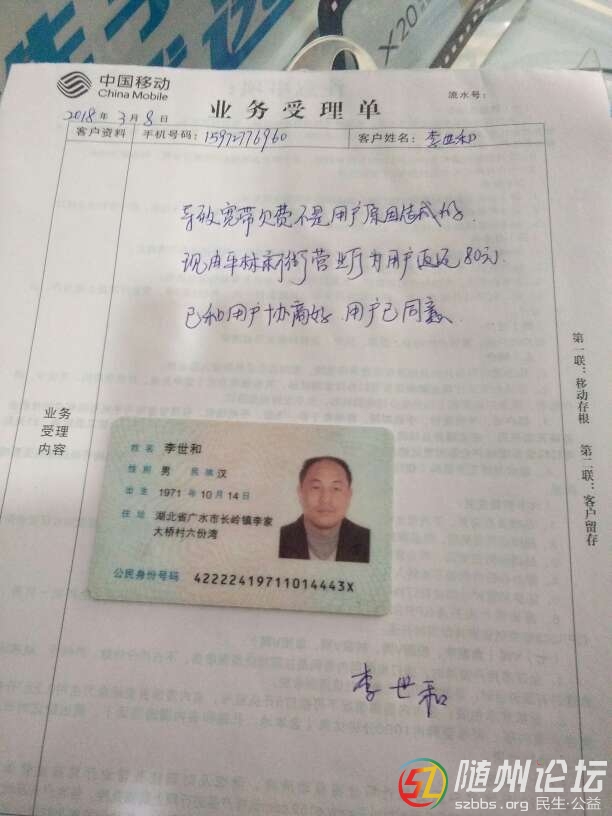 中国移动
China Mobile
业务受理单
流水号:
2018年3月8日
客户资料 手机号码: 15972776960 客户姓名: 李世和
导致宽带欠费不是用户原因造成的.
现由平林新街营业厅为用户返还80元
已和用户协商好.用户已同意.
业务
受理
内容
姓名 李世和
性别 男 民族 汉
出生 1971年10月14日
住址 湖北省广水市长岭镇李家
大桥村六份湾
公民身份号码 42222419711014443X
李世和
第一联:移动存根 第二联:客户留存
X20
随州论坛
szbbs.org 民生·公益